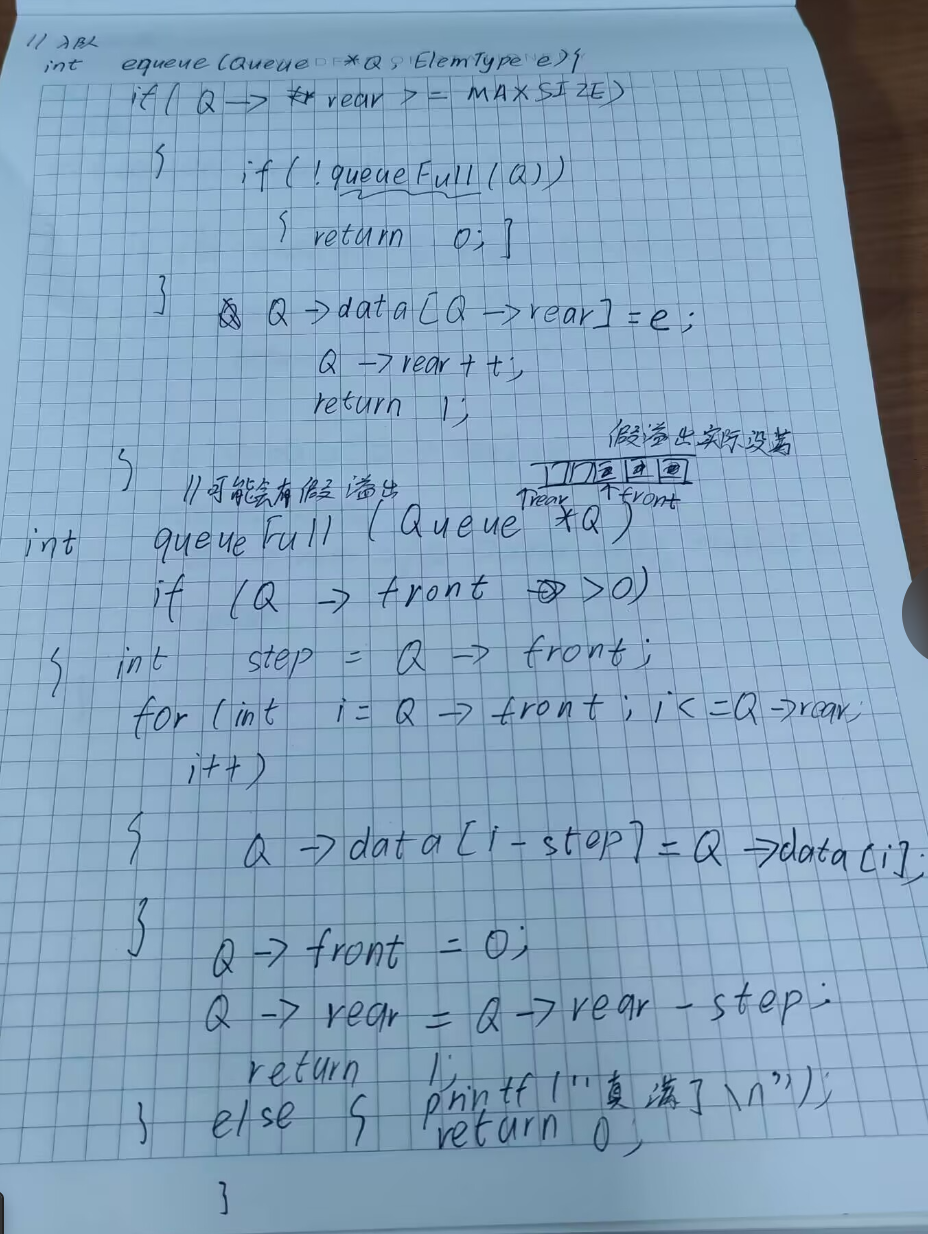 //入队
int equeue(Queue *Q, ElemType e){
if( Q -> rear >= MAXSIZE)
{ if(!queueFull(Q))
{ return 0; }
}
Q ->data[Q ->rear] = e;
Q ->rear++;
return 1;
假溢出实际没满
}
//可能会有假溢出
↑rear ↑front
int queueFull (Queue *Q)
if (Q -> front >0)
{ int step = Q -> front;
for (int i= Q -> front; i<=Q ->rear;
i++)
{ Q ->data[i-step] = Q ->data[i];
}
Q -> front = 0;
Q -> rear = Q ->rear - step;
return 1;
printf("真满了\n");
} else { return 0;
}